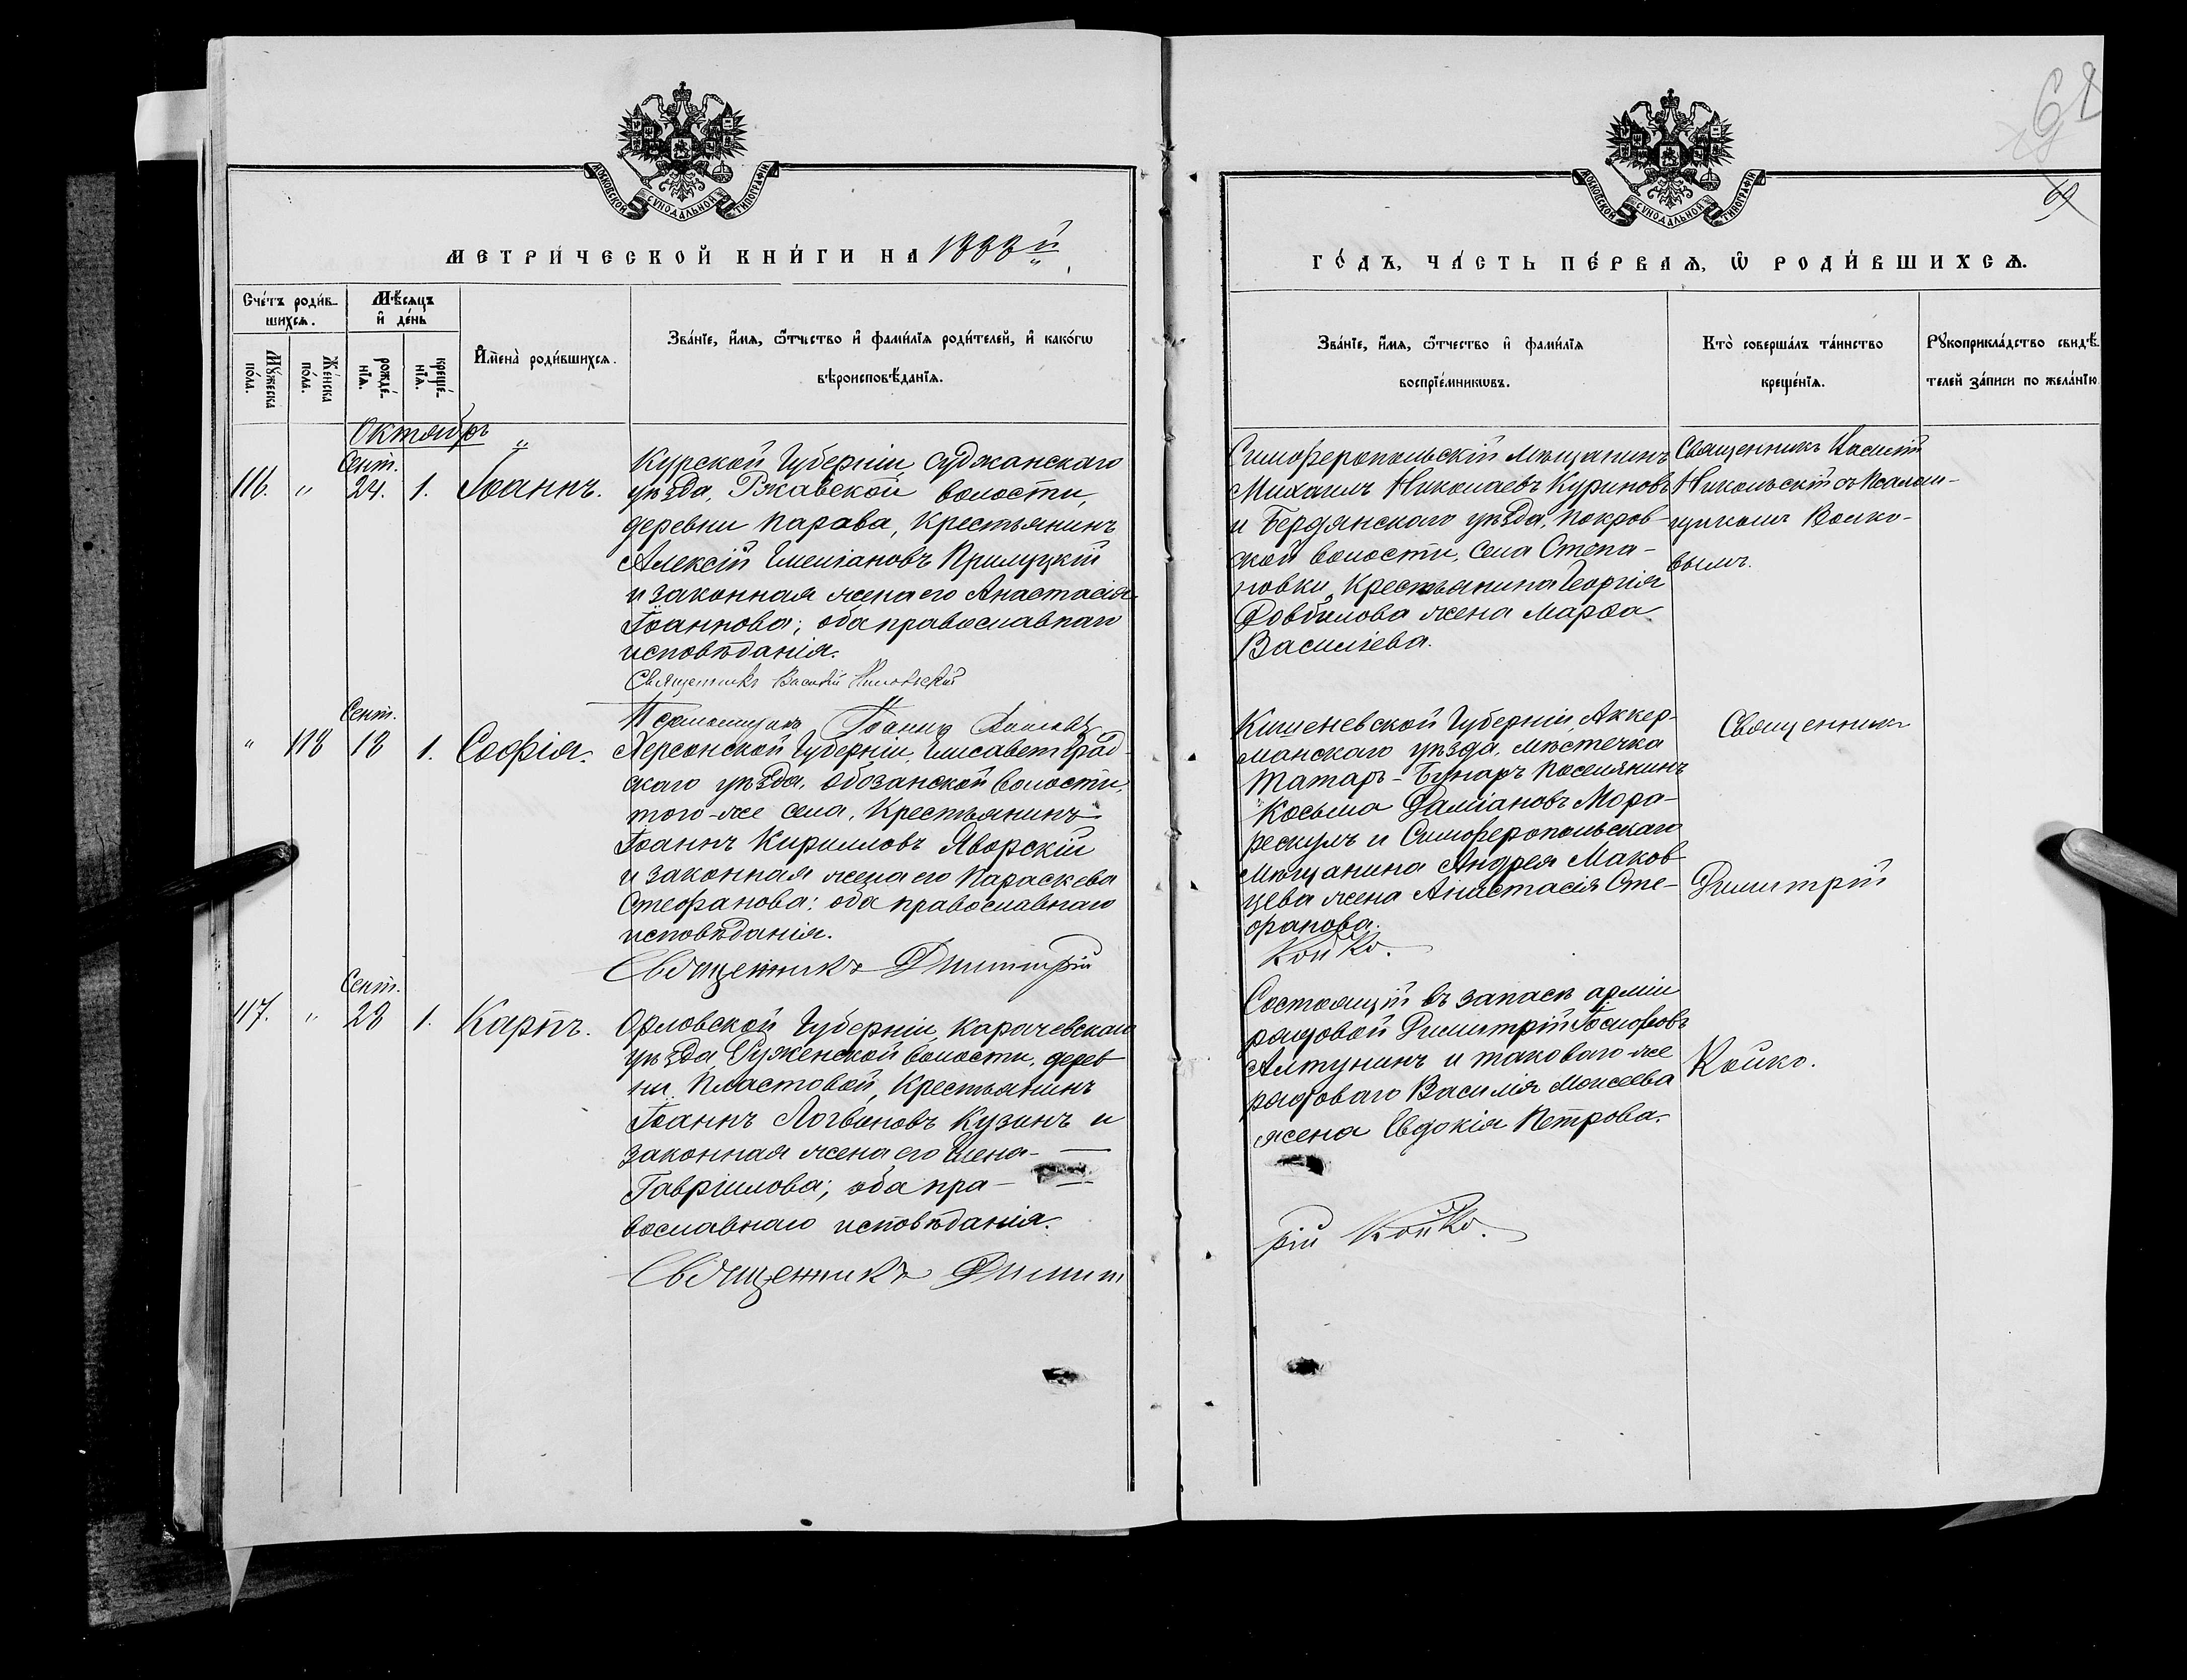 МОСКОВСКОЙ СУНОДАЛЬНОЙ ТИПОГРАФІИ
МЕТРИ́ЧЕСКОЙ КНИ́ГИ НА 1888й
Сче́тъ роди́в-
шихсѧ.
Мѣ́сѧцъ
и҆ де́нь
Мꙋ́жеска
по́ла.
Же́нска
по́лъ.
рожде́-
нїѧ.
креще́-
нїѧ.
И҆мена̀ роди́вшихсѧ.
Зва́нїе, и҆́мѧ, ѻ҆́тчество и҆ фами́лїѧ роди́телей, и҆ како́гѡ
вѣроисповѣ́данїѧ.
Октябрь
116. " Сент. 24. 1. Іоаннъ.
Курской Губерніи, Суджанскаго
уѣзда, Ржавской волости,
деревни Парава, Крестьянинъ
Алексій Емеліановъ Прилуцкій
и законная жена его Анастасія
Іоаннова; оба православнаго
исповѣданія.
Священникъ Василій Никольскій
Псаломщикъ Іоаннъ
" 118 Сент. 18 1. Софія.
Херсонской Губерніи, Елисаветград-
скаго уѣзда, Обозанской волости,
того-же села, Крестьянинъ
Іоаннъ Кирилловъ Яворскій
и законная жена его Параскева
Стефанова: оба православнаго
исповѣданія.
Священникъ Димитрій
117. " Сент. 28 1. Карпъ.
Орловской Губерніи, Карачевскаго
уѣзда, Руженской волости, дерев-
ни Пластовой, Крестьянинъ
Іоаннъ Логвиновъ Кузинъ и
законная жена его Елена-
Гавріилова; оба пра-
вославнаго исповѣданія.
Священникъ Димит
МОСКОВСКОЙ СУНОДАЛЬНОЙ ТИПОГРАФІИ
68
ГО́ДЪ, ЧА́СТЬ ПЕ́РВАѦ, Ѡ҆ РОДИ́ВШИХСѦ.
Зва́нїе, и҆́мѧ, ѻ҆́тчество и҆ фами́лїѧ
воспрїе́мникѡвъ.
Кто̀ соверша́лъ та́инство
креще́нїѧ.
Рꙋкоприкла́дство свидѣ́-
телей за́писи по жела́нїю
Симферопольскій мѣщанинъ
Михаилъ Николаевъ Куриновъ
и Бердянскаго уѣзда, Покров-
ской волости, села Степа-
новки, Крестьянина Георгія
Довбилова жена Марфа
Василіева.
Священникъ Василій
Никольскій съ Псалом-
щикомъ Волко-
вымъ.
Кишеневской Губерніи, Аккер-
манскаго уѣзда, мѣстечка
Татаръ-Бунаръ поселянинъ
Косьма Даміановъ Мора-
рескулъ и Симферопольскаго
мѣщанина Андрея Маков-
цева жена Анастасія Сте-
фанова.
Койко.
Священникъ
Димитрій
Койко.
Состоящій въ запасѣ арміи
рядовой Димитрій Іосифовъ
Алтунинъ и таковаго-же
рядоваго Василія Моисеева
жена Евдокія Петрова.
рій Койко.